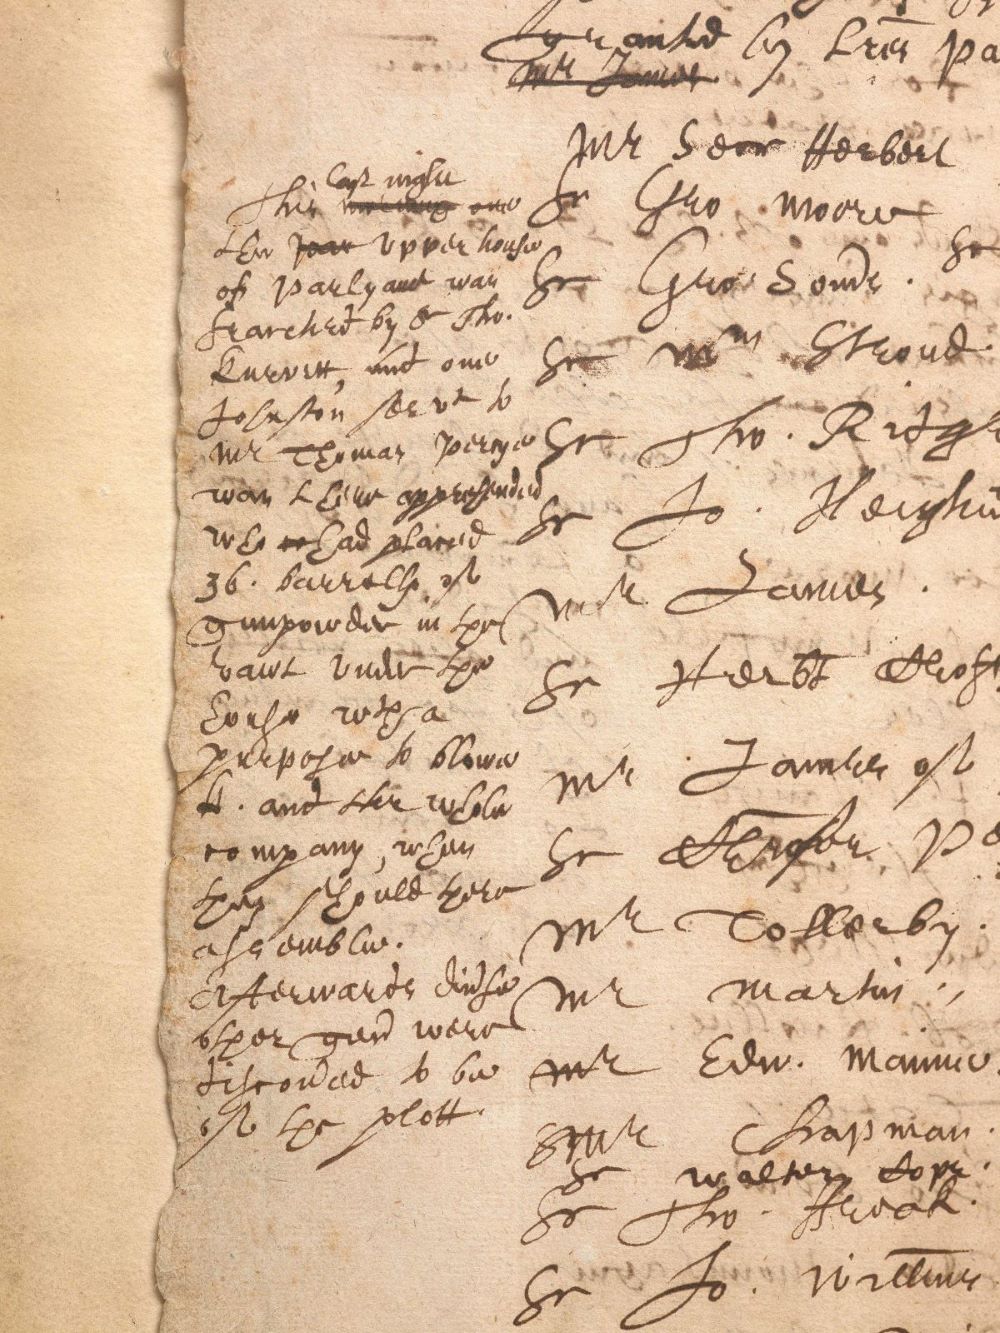 granted by Lres Pa
Mr James
Mr Serr Herbert
Sr Geo. Moore
Sr Geo. Somrs. Sr
Sr Wm Stroud.
Sr Tho. Ridg
Sr Jo. Heigha
Mr James.
Sr Herbt Croft
Mr James of
Sr Chrofer P
Mr Tolderby.
Mr Martin.
Mr Edw. Mainne.
Mr Chapman.
Sr Walter Cope.
Sr Tho. Freak.
Sr Jo.
last night
This morning one
the Upper house
of Parlyamt was
searched by Sr Tho.
Knevett, and one
Johnston servt to
Mr Thomas Percye
was there apprehended
who had placed
36. barrells of
gunpowder in the
vawt under the
house wth a
purpose to blowe
it. and the whole
company, when
they should here
assemble.
Afterwards divrse
other gent were
discovred to be
of the plott.